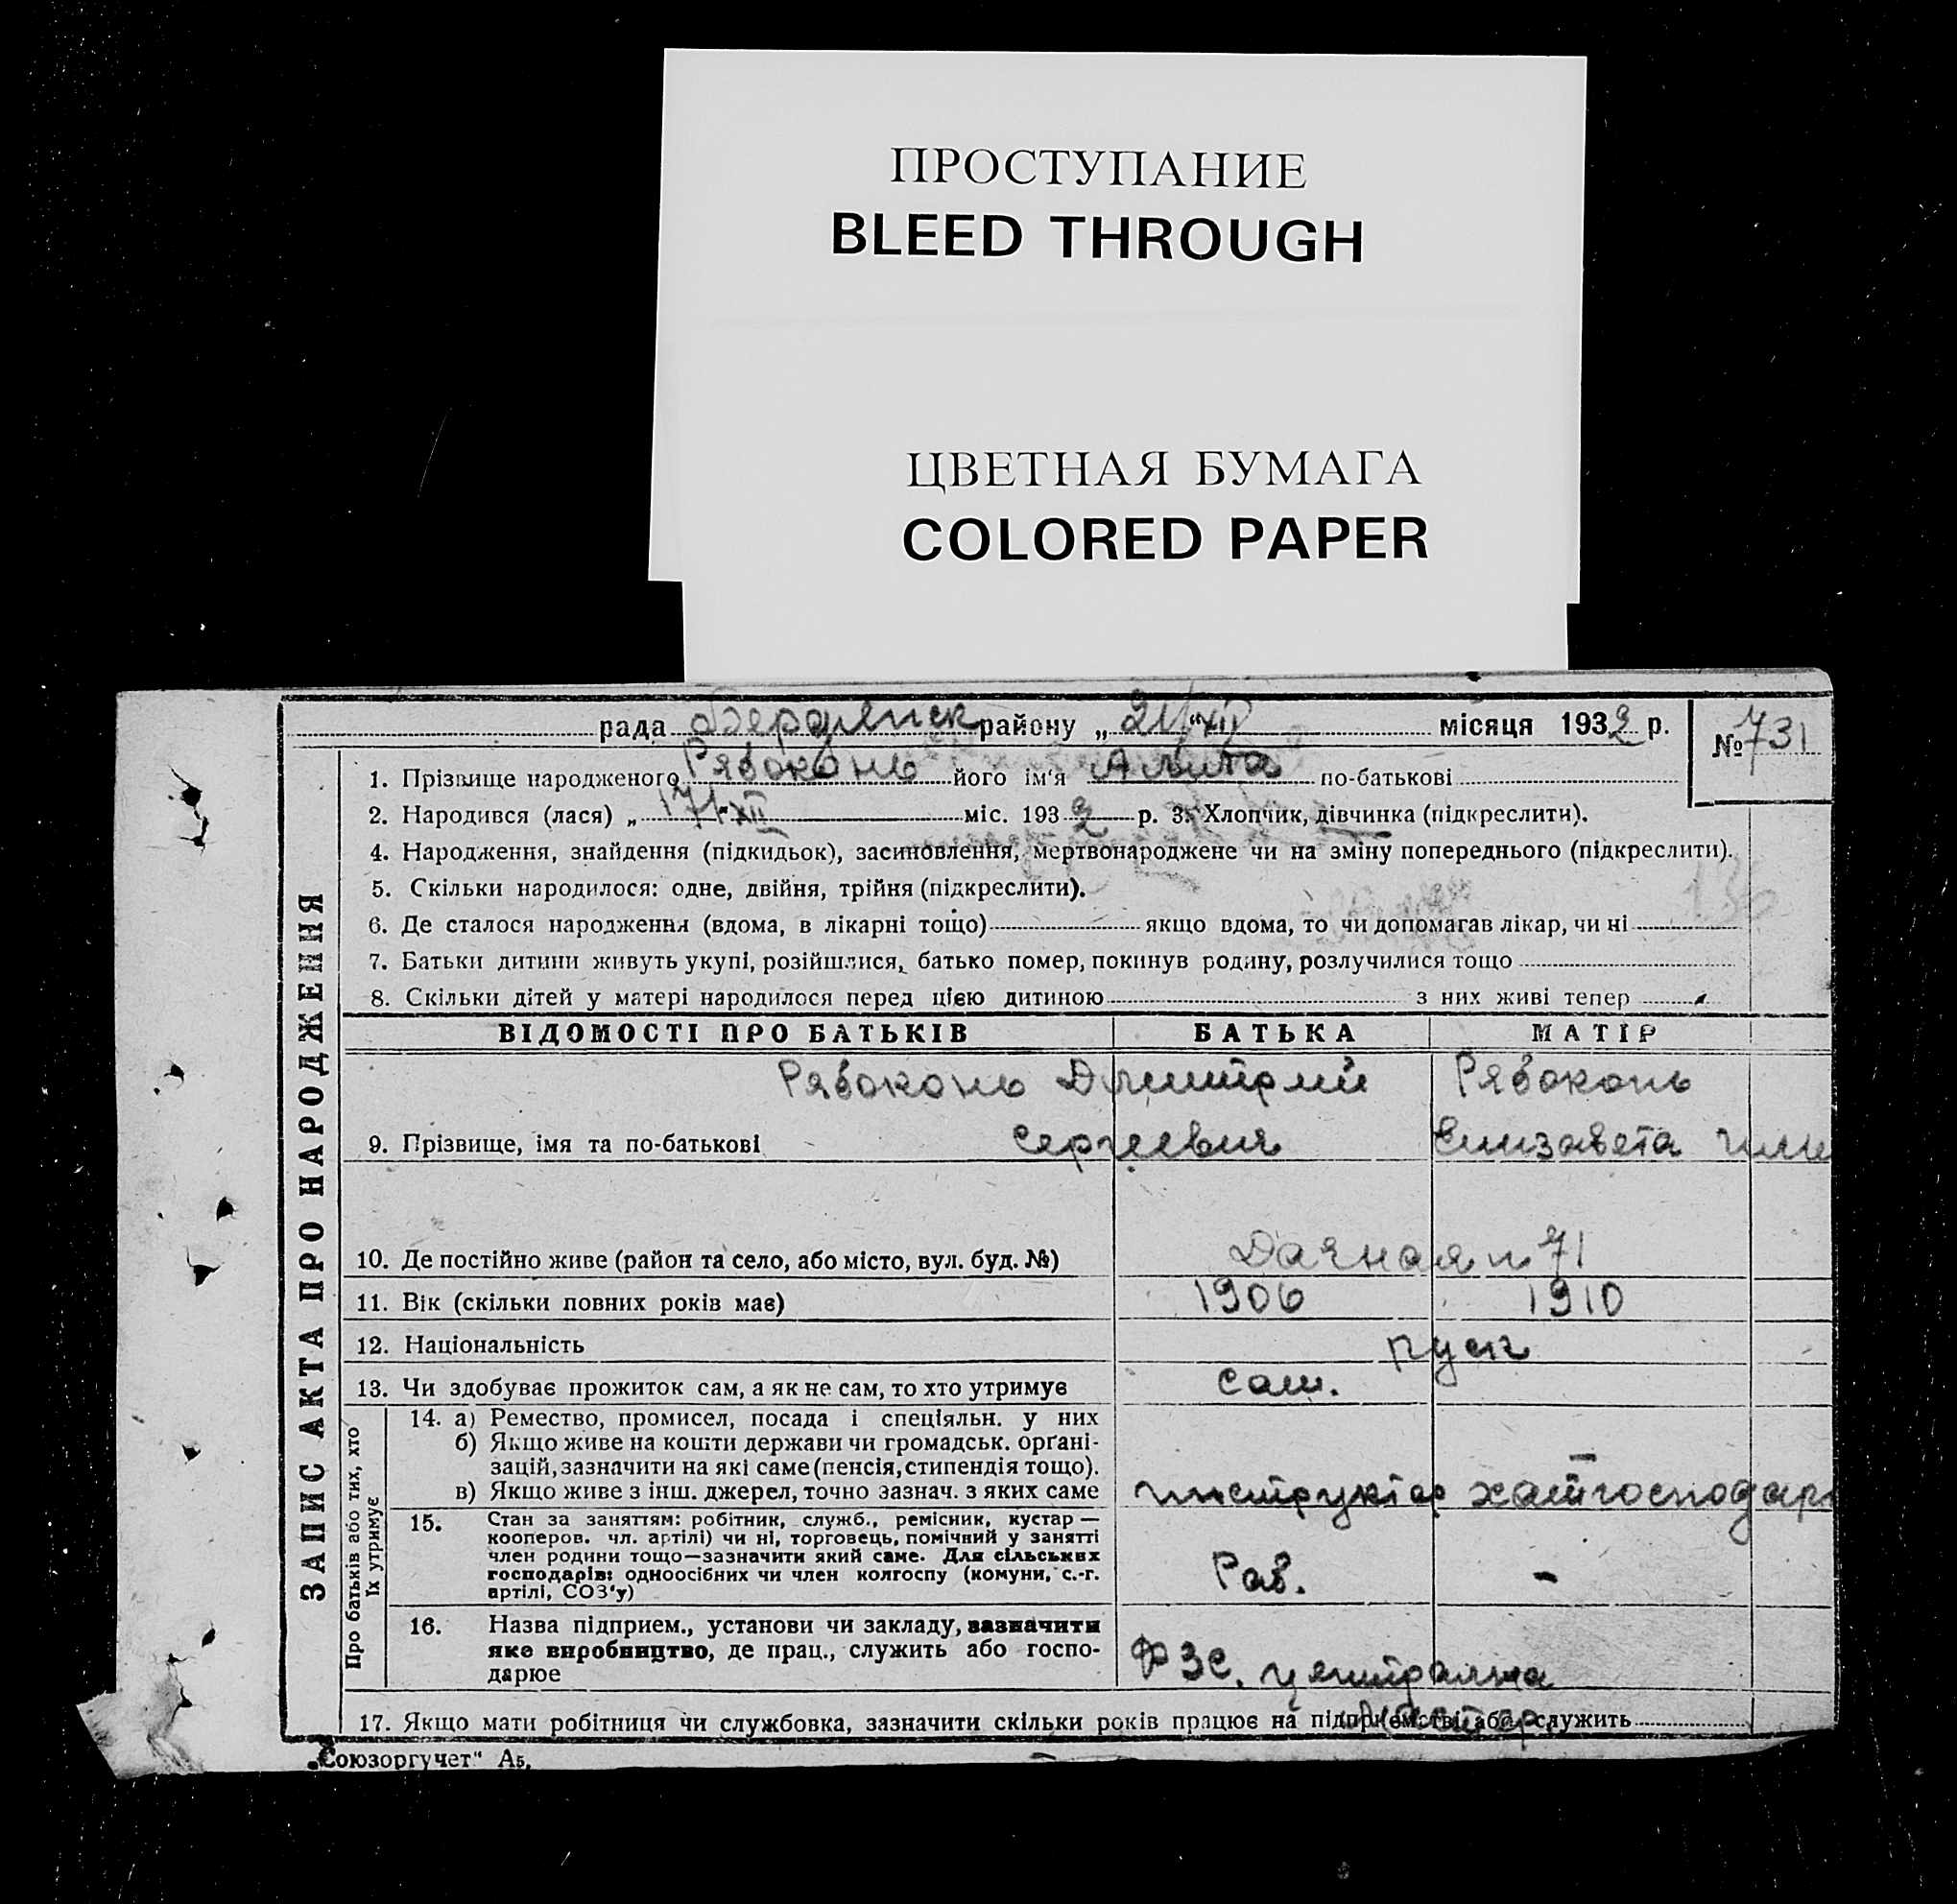 ПРОСТУПАНИЕ
BLEED THROUGH
ЦВЕТНАЯ БУМАГА
COLORED PAPER
рада Бердянск району „21/XII“ місяця 1932 р. № 731
1. Прізвище народженого Рябоконь його ім'я Аэлита по-батькові
2. Народився (лася) „17/XII“ міс. 1932 р. 3. Хлопчик, дівчинка (підкреслити).
4. Народження, знайдення (підкидьок), засиновлення, мертвонароджене чи на зміну попереднього (підкреслити).
5. Скільки народилося: одне, двійня, трійня (підкреслити).
6. Де сталося народження (вдома, в лікарні тощо) якщо вдома, то чи допомагав лікар, чи ні
7. Батьки дитини живуть укупі, розійшлися, батько помер, покинув родину, розлучилися тощо
8. Скільки дітей у матері народилося перед цією дитиною з них живі тепер
ЗАПИС АКТА ПРО НАРОДЖЕННЯ
ВІДОМОСТІ ПРО БАТЬКІВ БАТЬКА МАТІР
Рябоконь Дмитрий Рябоконь
9. Прізвище, імя та по-батькові Сергеевич Елизавета
10. Де постійно живе (район та село, або місто, вул. буд. №) Дачная 71
11. Вік (скільки повних років має) 1906 1910
12. Національність руск
13. Чи здобуває прожиток сам, а як не сам, то хто утримує сам.
Про батьків або тих, хто їх утримує
14. а) Ремество, промисел, посада і спеціяльн. у них
б) Якщо живе на кошти держави чи громадськ. орґані-
зацій, зазначити на які саме (пенсія, стипендія тощо). –
в) Якщо живе з інш. джерел, точно зазнач. з яких саме инструктор хатгосподар
15. Стан за заняттям: робітник, служб., ремісник, кустар —
кооперов. чл. артілі) чи ні, торговець, помічний у занятті
член родини тощо—зазначити який саме. Для сільських
господарів: одноосібних чи член колгоспу (комуни, с.-г. Раб. -
артілі, СОЗ'у)
16. Назва підприєм., установи чи закладу, зазначити
яке виробництво, де прац., служить або госпо-
дарює ФЗС. центральна
17. Якщо мати робітниця чи службовка, зазначити скільки років працює на підприємстві або служить
„Союзоргучет“ А5,